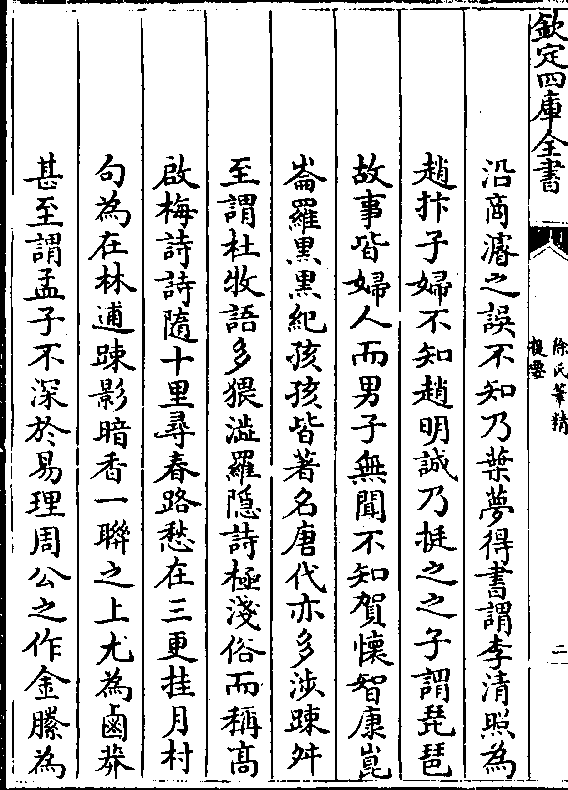 欽定四庫全書
徐氏筆精
提要
二
沿商濬之誤不知乃葉夢得書謂李清照為
趙抃子婦不知趙明誠乃挺之之子謂琵琶
故事皆婦人而男子無聞不知賀懷智康崑
崙羅黒黒紀孩孩皆著名唐代亦多涉踈舛
至謂杜牧語多猥澁羅隱詩極淺俗而稱髙
啟梅詩詩隨十里尋春路愁在三更挂月村
句為在林逋踈影暗香一聯之上尤為鹵莽
甚至謂孟子不深於易理周公之作金縢為